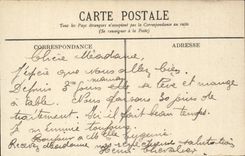 CARTE POSTALE
Tous les Pays étrangers n'acceptent pas la Correspondance au recto
(Se renseigner à la Poste)
CORRESPONDANCE
ADRESSE
Chère Mesdame,
J'espère que vous allez bien.
Depuis 3 jours elle se lève et mange
à table. Nous faisons 30 jours de
traitement. Ici il fait beau temps.
toujours
Recevez Mesdame nos respectueuses salutations
Henri Chevalier